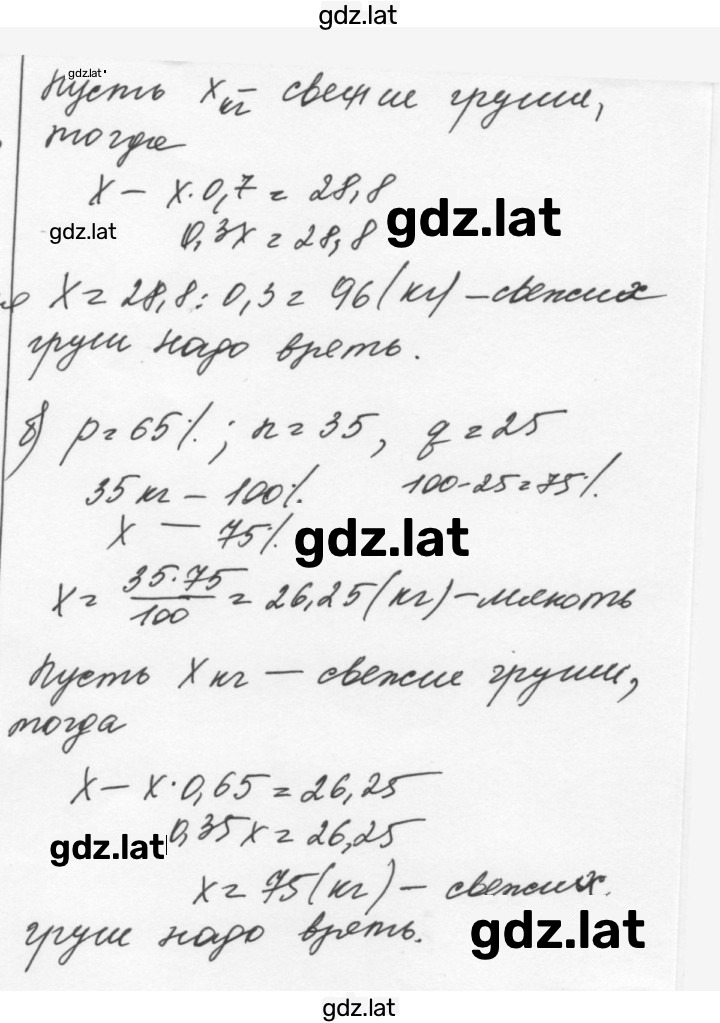 gdz.lat
gdz.lat
Пусть x кг – свежие груши,
тогда
x – x·0,7 = 28,8
gdz.lat
gdz.lat
0,3x = 28,8
x = 28,8 : 0,3 = 96 (кг) – свежих
груш надо взять.
б) p = 65%; n = 35, q = 25
35 кг – 100%. 100-25=75%.
x – 75%.
gdz.lat
x = 35·75/100 = 26,25 (кг) – мякоть
Пусть x кг – свежие груши,
тогда
x – x·0,65 = 26,25
0,35x = 26,25
gdz.lat
x = 75 (кг) – свежих
груш надо взять.
gdz.lat
gdz.lat